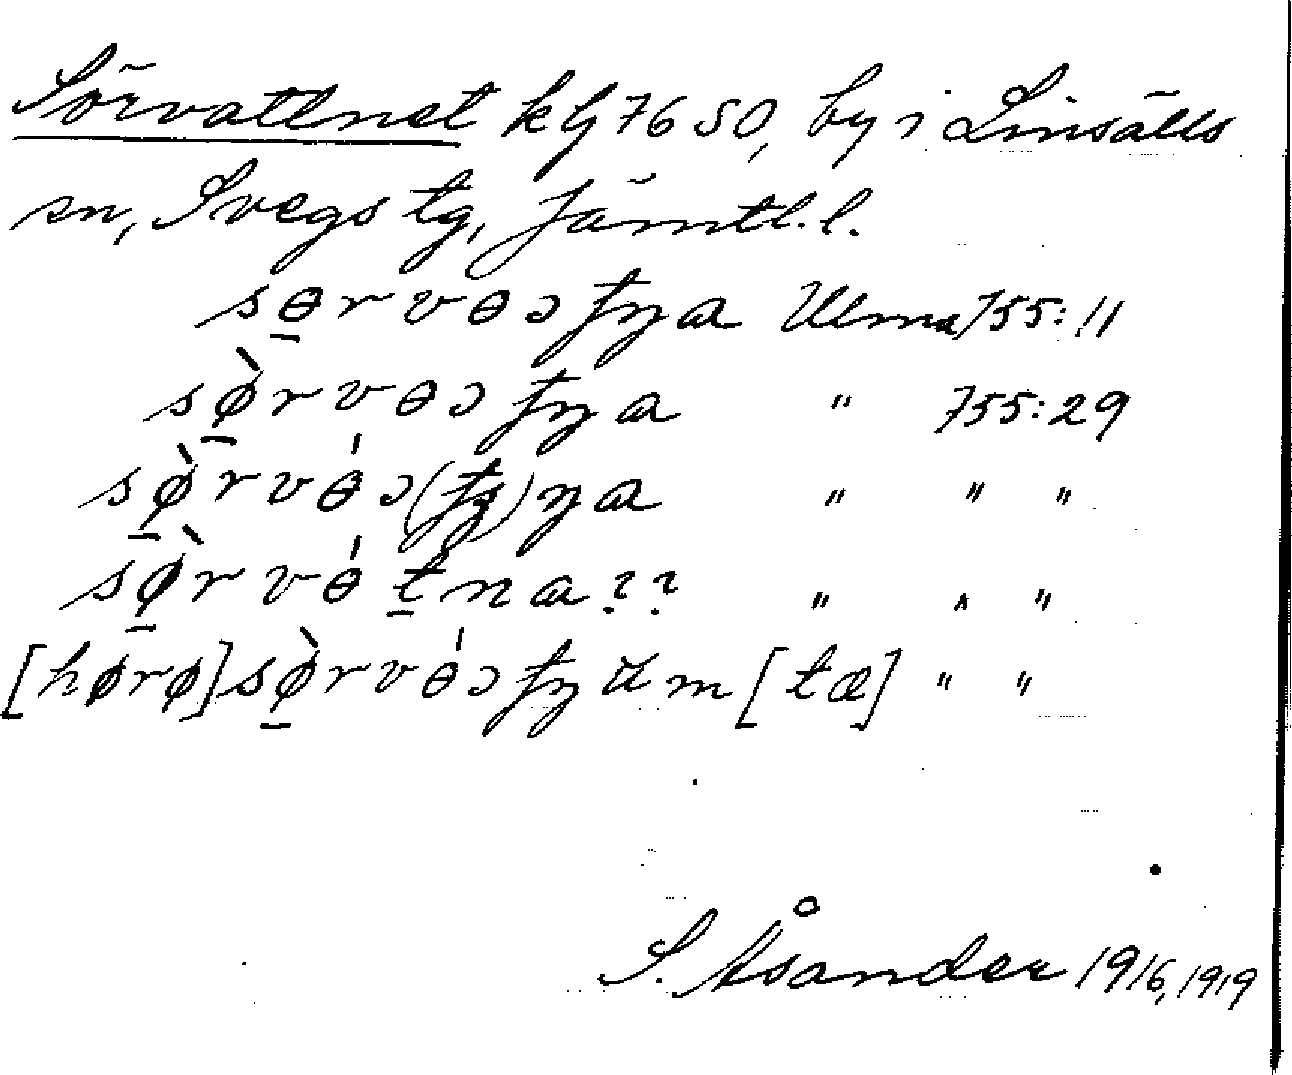 Sörvattnet kfj 7650, by i Linsälls
sn, Svegs tg, Jämtl. l.
sɵ̲rvɵɔʈŋa Ulma 755:11
sø̲̀rvɵɔʈŋa " 755:29
sø̲̀rvɵ́ɔ(ʈŋ)ŋa " " "
sø̲̀rvɵ́t̲na?? " " "
[hørø]sø̲̀rvɵ́ɔʈŋŭm[tæ] " "
S. Åsander 1916, 1919